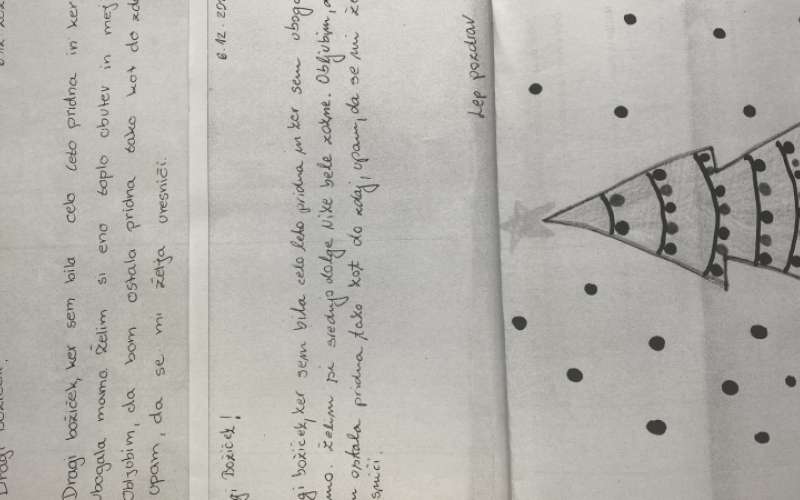 6.12.202
Dragi božiček,
Dragi božiček, ker sem bila celo leto pridna in ker
ubogala mamo želim si eno toplo obutev in mej
Obljubim, da bom ostala pridna tako kot do zda
upam, da se mi želja uresniči.
6.12.20
gi Božiček!
gi božiček, ker sem bila celo leto pridna in ker sem uboga
mo. Želim si srednjo dolge Nike bele zokne. Obljubim, d
m ostala pridna tako kot do zdaj, upam, da se mi že
sniči.
Lep pozdrav